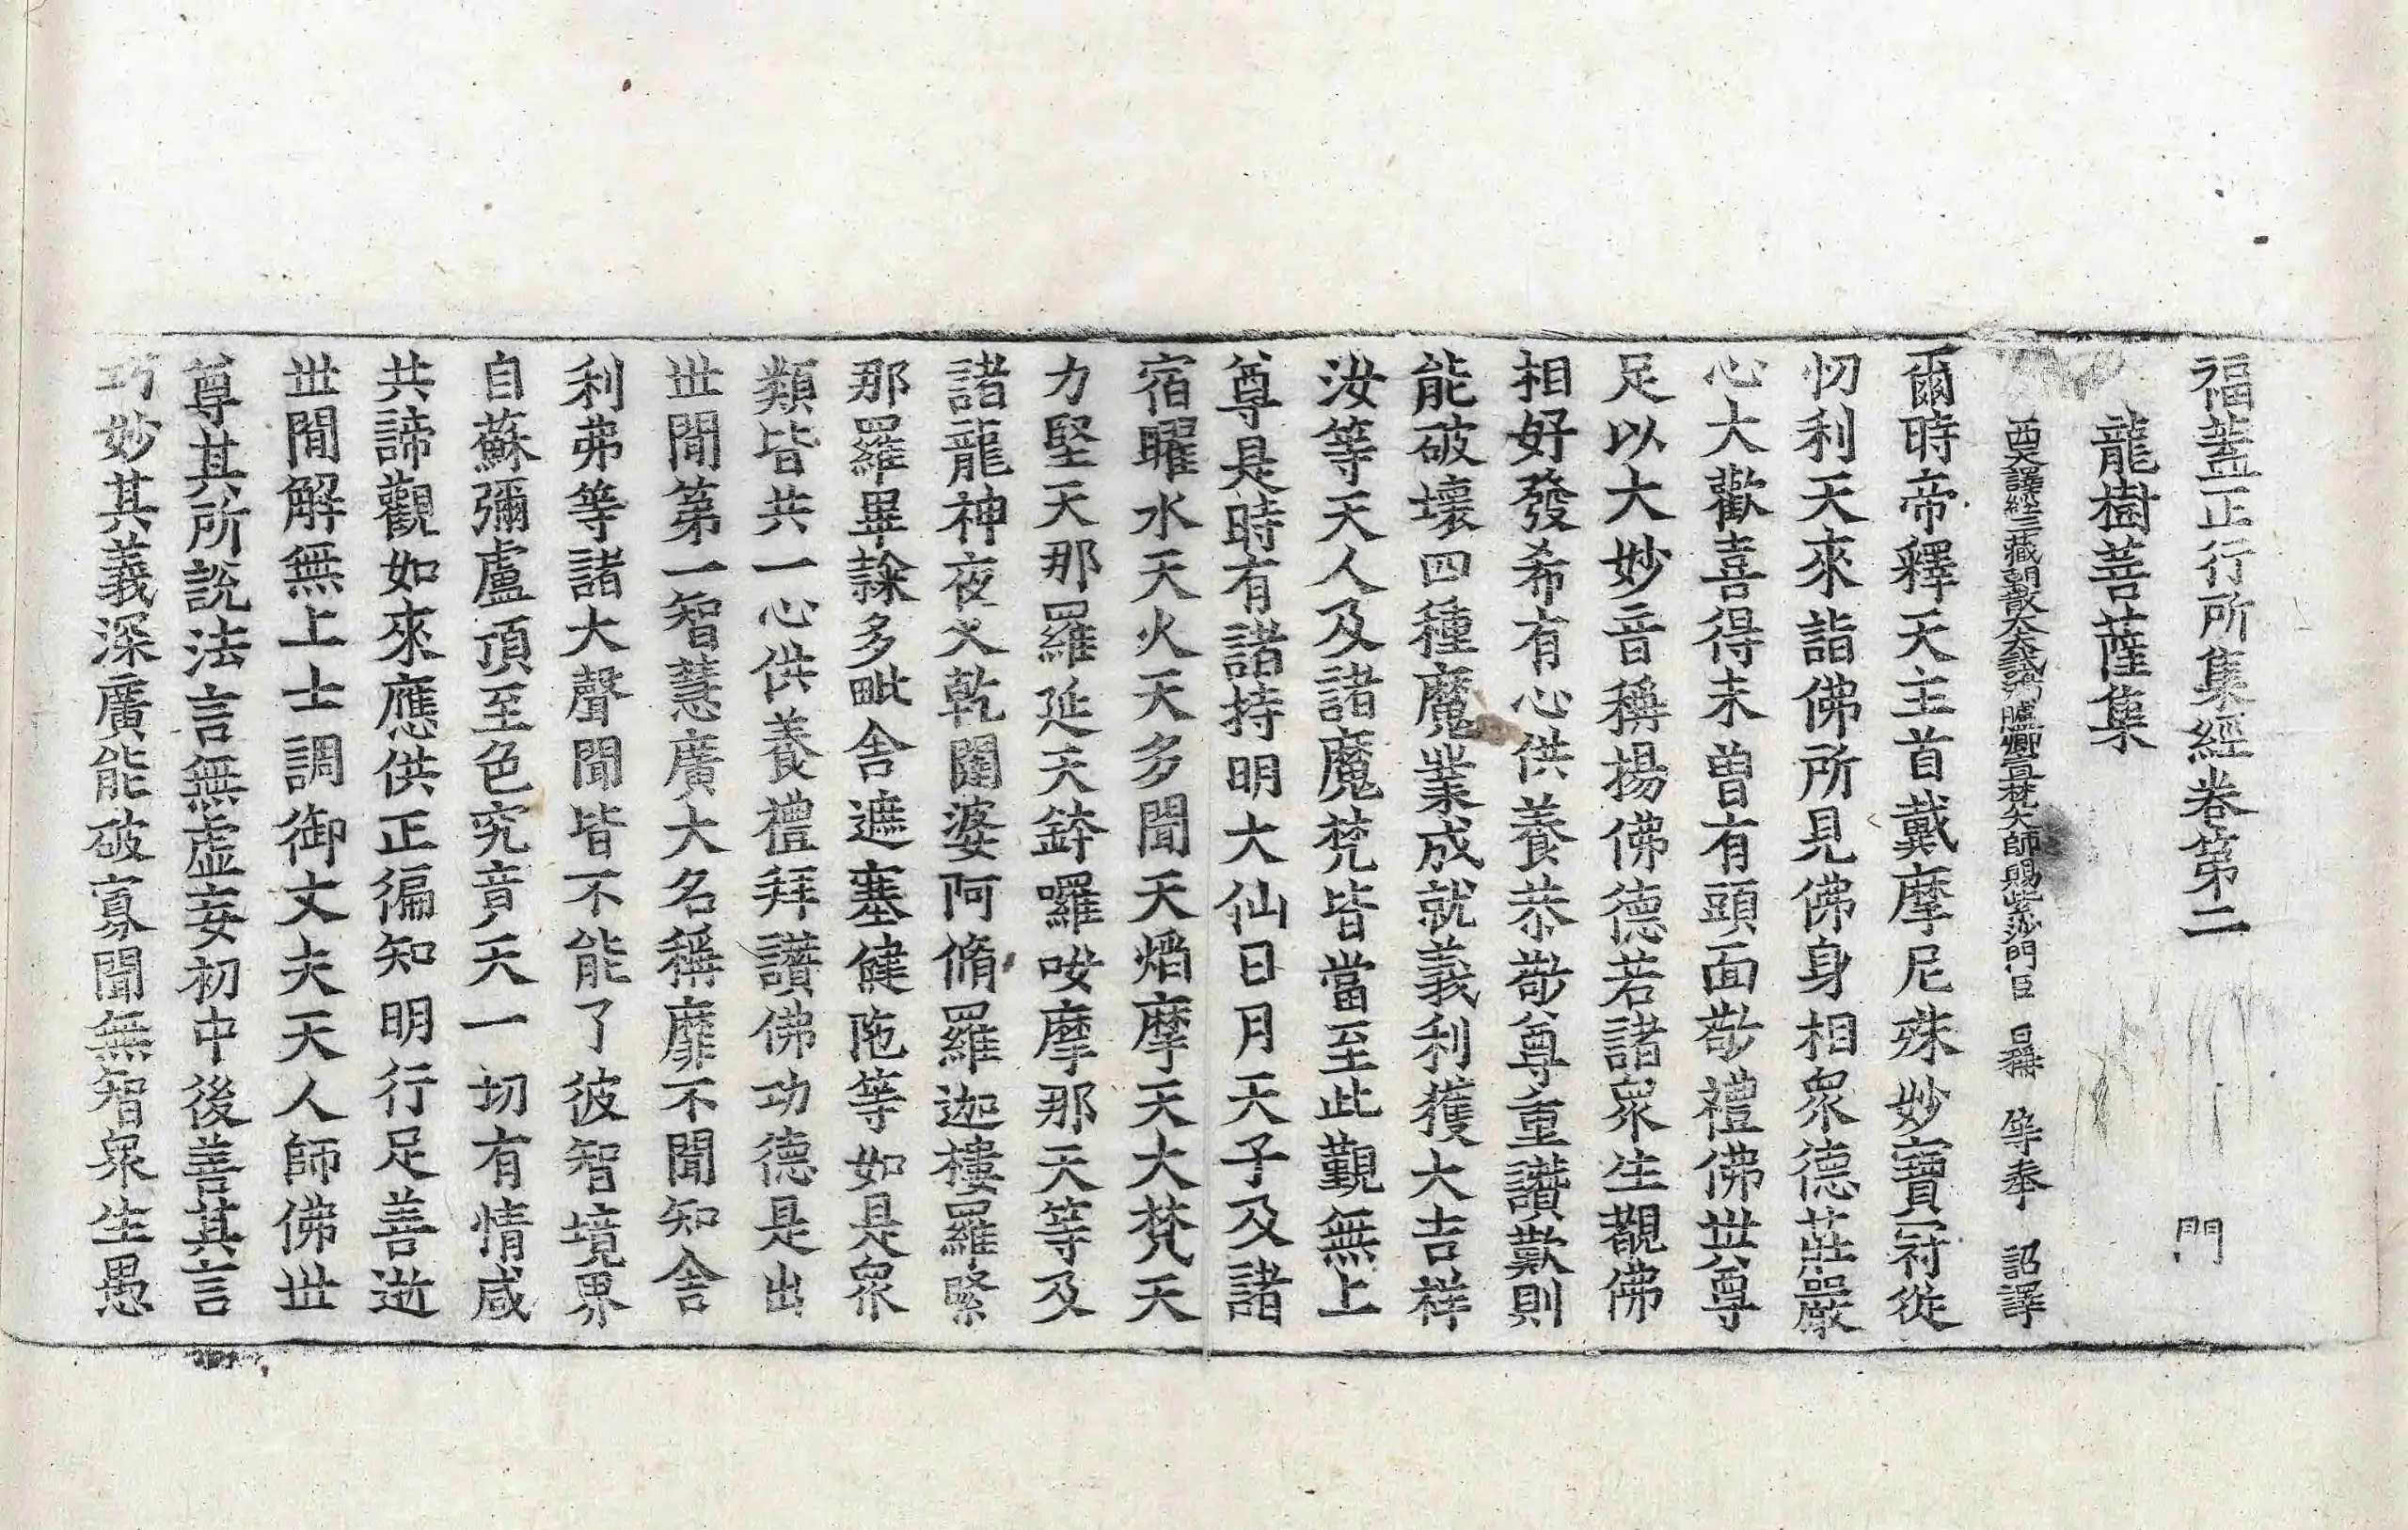 福蓋正行所集經卷第二 門
龍樹菩薩集
西天譯經三藏朝散大夫試鴻臚卿宣梵大師賜紫沙門臣 日稱 等奉 詔譯
爾時帝釋天主首戴摩尼殊妙寶冠從
忉利天來詣佛所見佛身相衆德莊嚴
心大歡喜得未曾有頭面敬禮佛世尊
足以大妙音稱揚佛德若諸衆生覩佛
相好發希有心供養恭敬尊重讚歎則
能破壞四種魔業成就義利獲大吉祥
汝等天人及諸魔梵皆當至此觀無上
尊是時有諸持明大仙日月天子及諸
宿曜水天火天多聞天焰摩天大梵天
力堅天那羅延天鉢囉吹摩那天等及
諸龍神夜叉乾闥婆阿脩羅迦樓羅緊
那羅畢隸多毗舍遮塞健陁等如是衆
類皆共一心供養禮拜讚佛功德是出
世間第一智慧廣大名稱靡不聞知舍
利弗等諸大聲聞皆不能了彼智境界
自蘇彌盧頂至色究竟天一切有情咸
共諦觀如來應供正徧知明行足善逝
世間解無上士調御丈夫天人師佛世
尊其所說法言無虛妄初中後善其言
巧妙其義深廣能破寡聞無智衆生愚